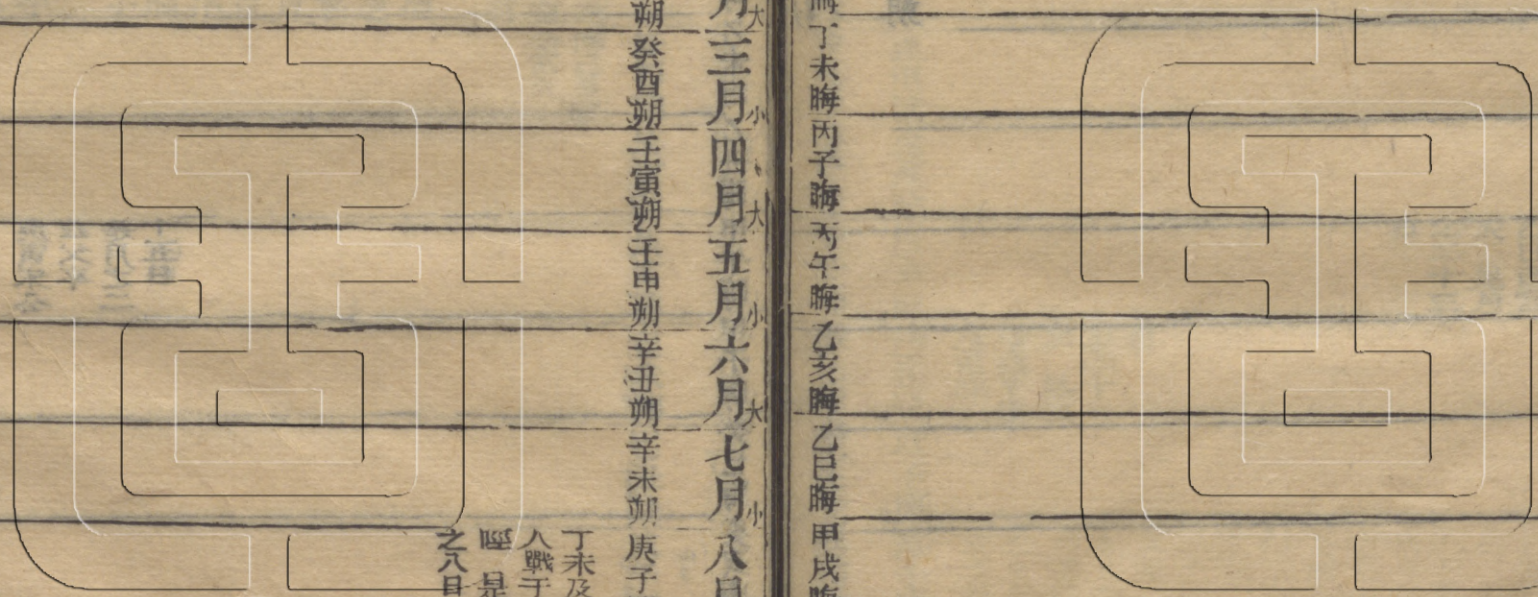 晦丁未晦丙子晦丙午晦乙亥晦乙巳晦甲戌晦
月大三月小四月大五月小六月大七月小八月
朔癸酉朔壬寅朔壬申朔辛丑朔辛未朔庚子
丁未及
人戰于
是
之八日